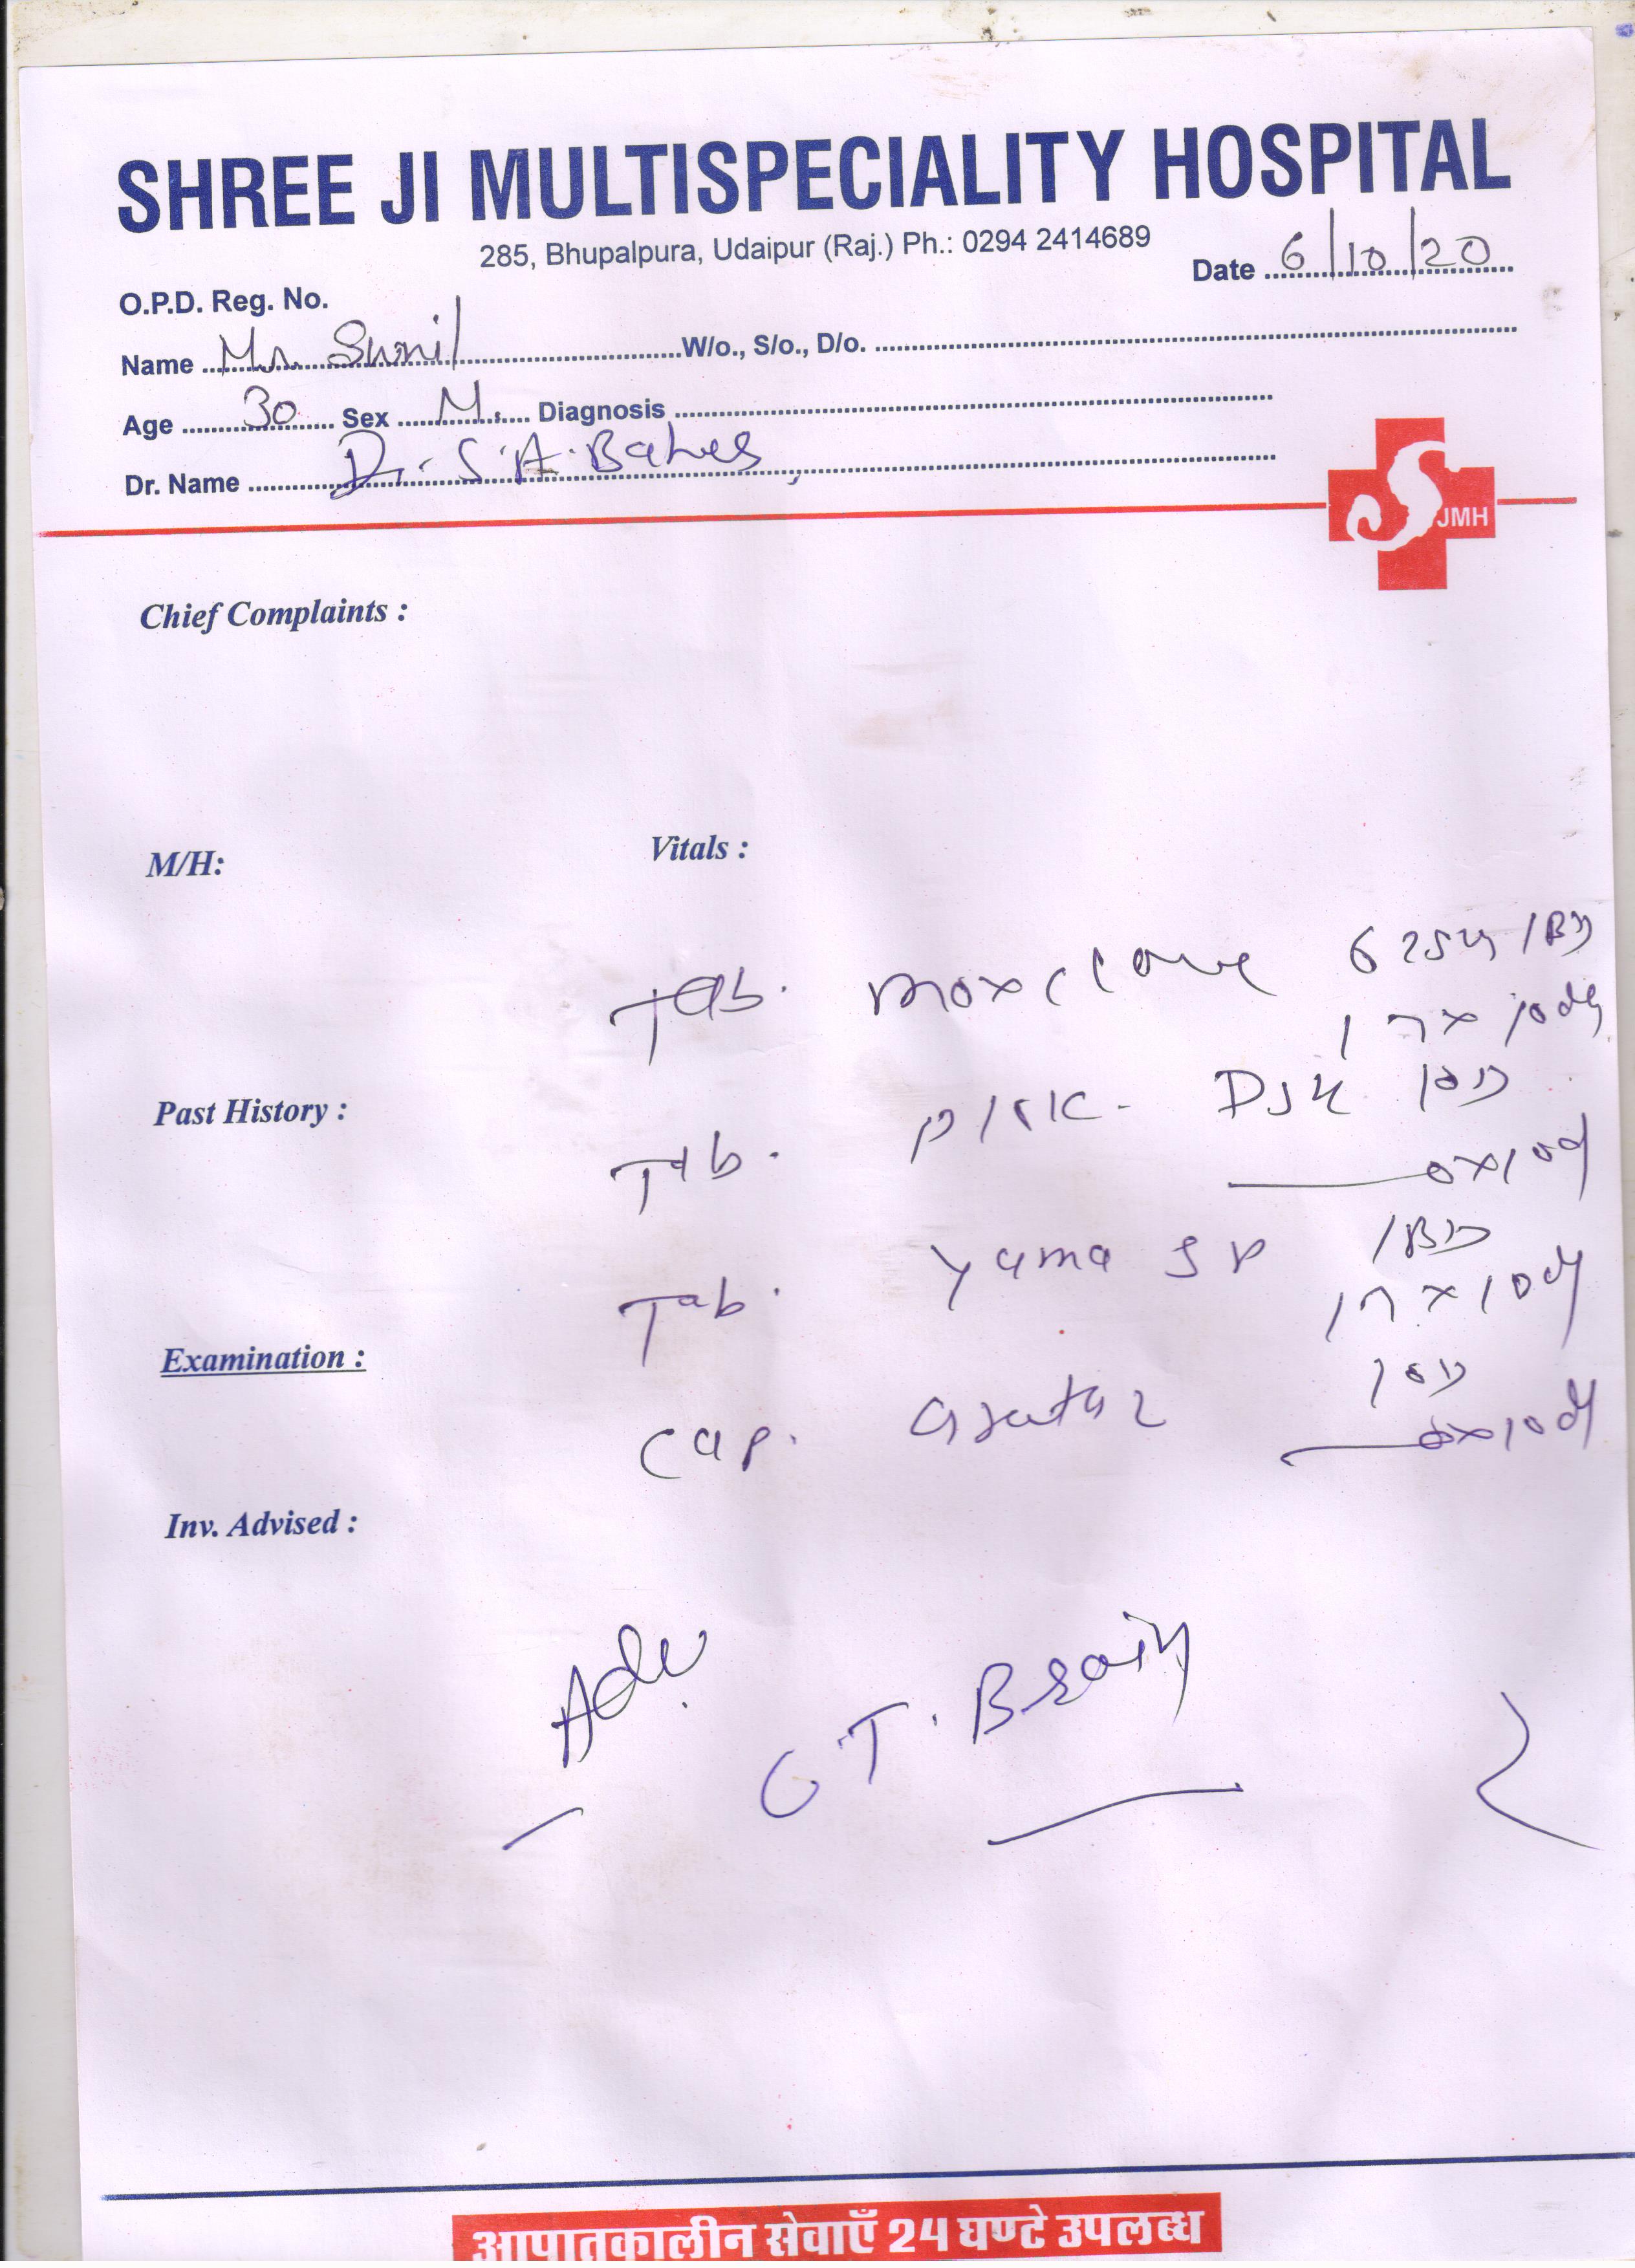 SHREE JI MULTISPECIALITY HOSPITAL
285, Bhupalpura, Udaipur (Raj.) Ph.: 0294 2414689
Date 6/10/20
O.P.D. Reg. No.
Name Mr. Sunil W/o., S/o., D/o.
Age 30 Sex M. Diagnosis
Dr. Name Dr. S.A.
JMH
Chief Complaints :
M/H: Vitals :
Tab. moxclave 625mg 1BD
x 10
Past History :
Tab. DSR 1OD
x10d
Tab. 1BD
x10d
Examination :
Cap. 1OD
x10d
Inv. Advised :
Adv.
C T. Brain
आपातकालीन सेवाएँ 24 घण्टे उपलब्ध